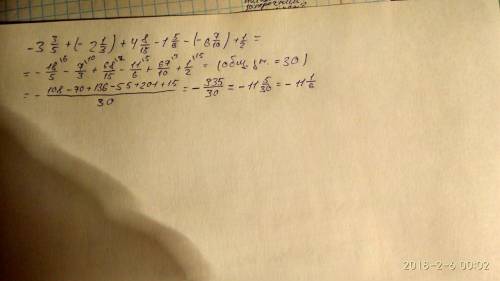 -3 3/5 + (-2 1/3) + 4 8/15 - 1 5/6 - (-6 7/10) + 1/2 =
= - 18/5 ^6 - 7/3 ^10 + 68/15 ^2 - 11/6 ^5 + 67/10 ^3 + 1/2 ^15 = (общ. зн. = 30)
= - 108-70+136-55+201+15/30 = - 335/30 = -11 5/30 = -11 1/6
2018-2-6 00:02